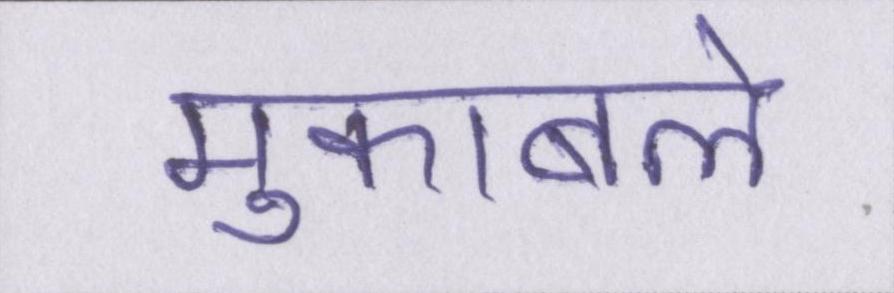 मुकाबले